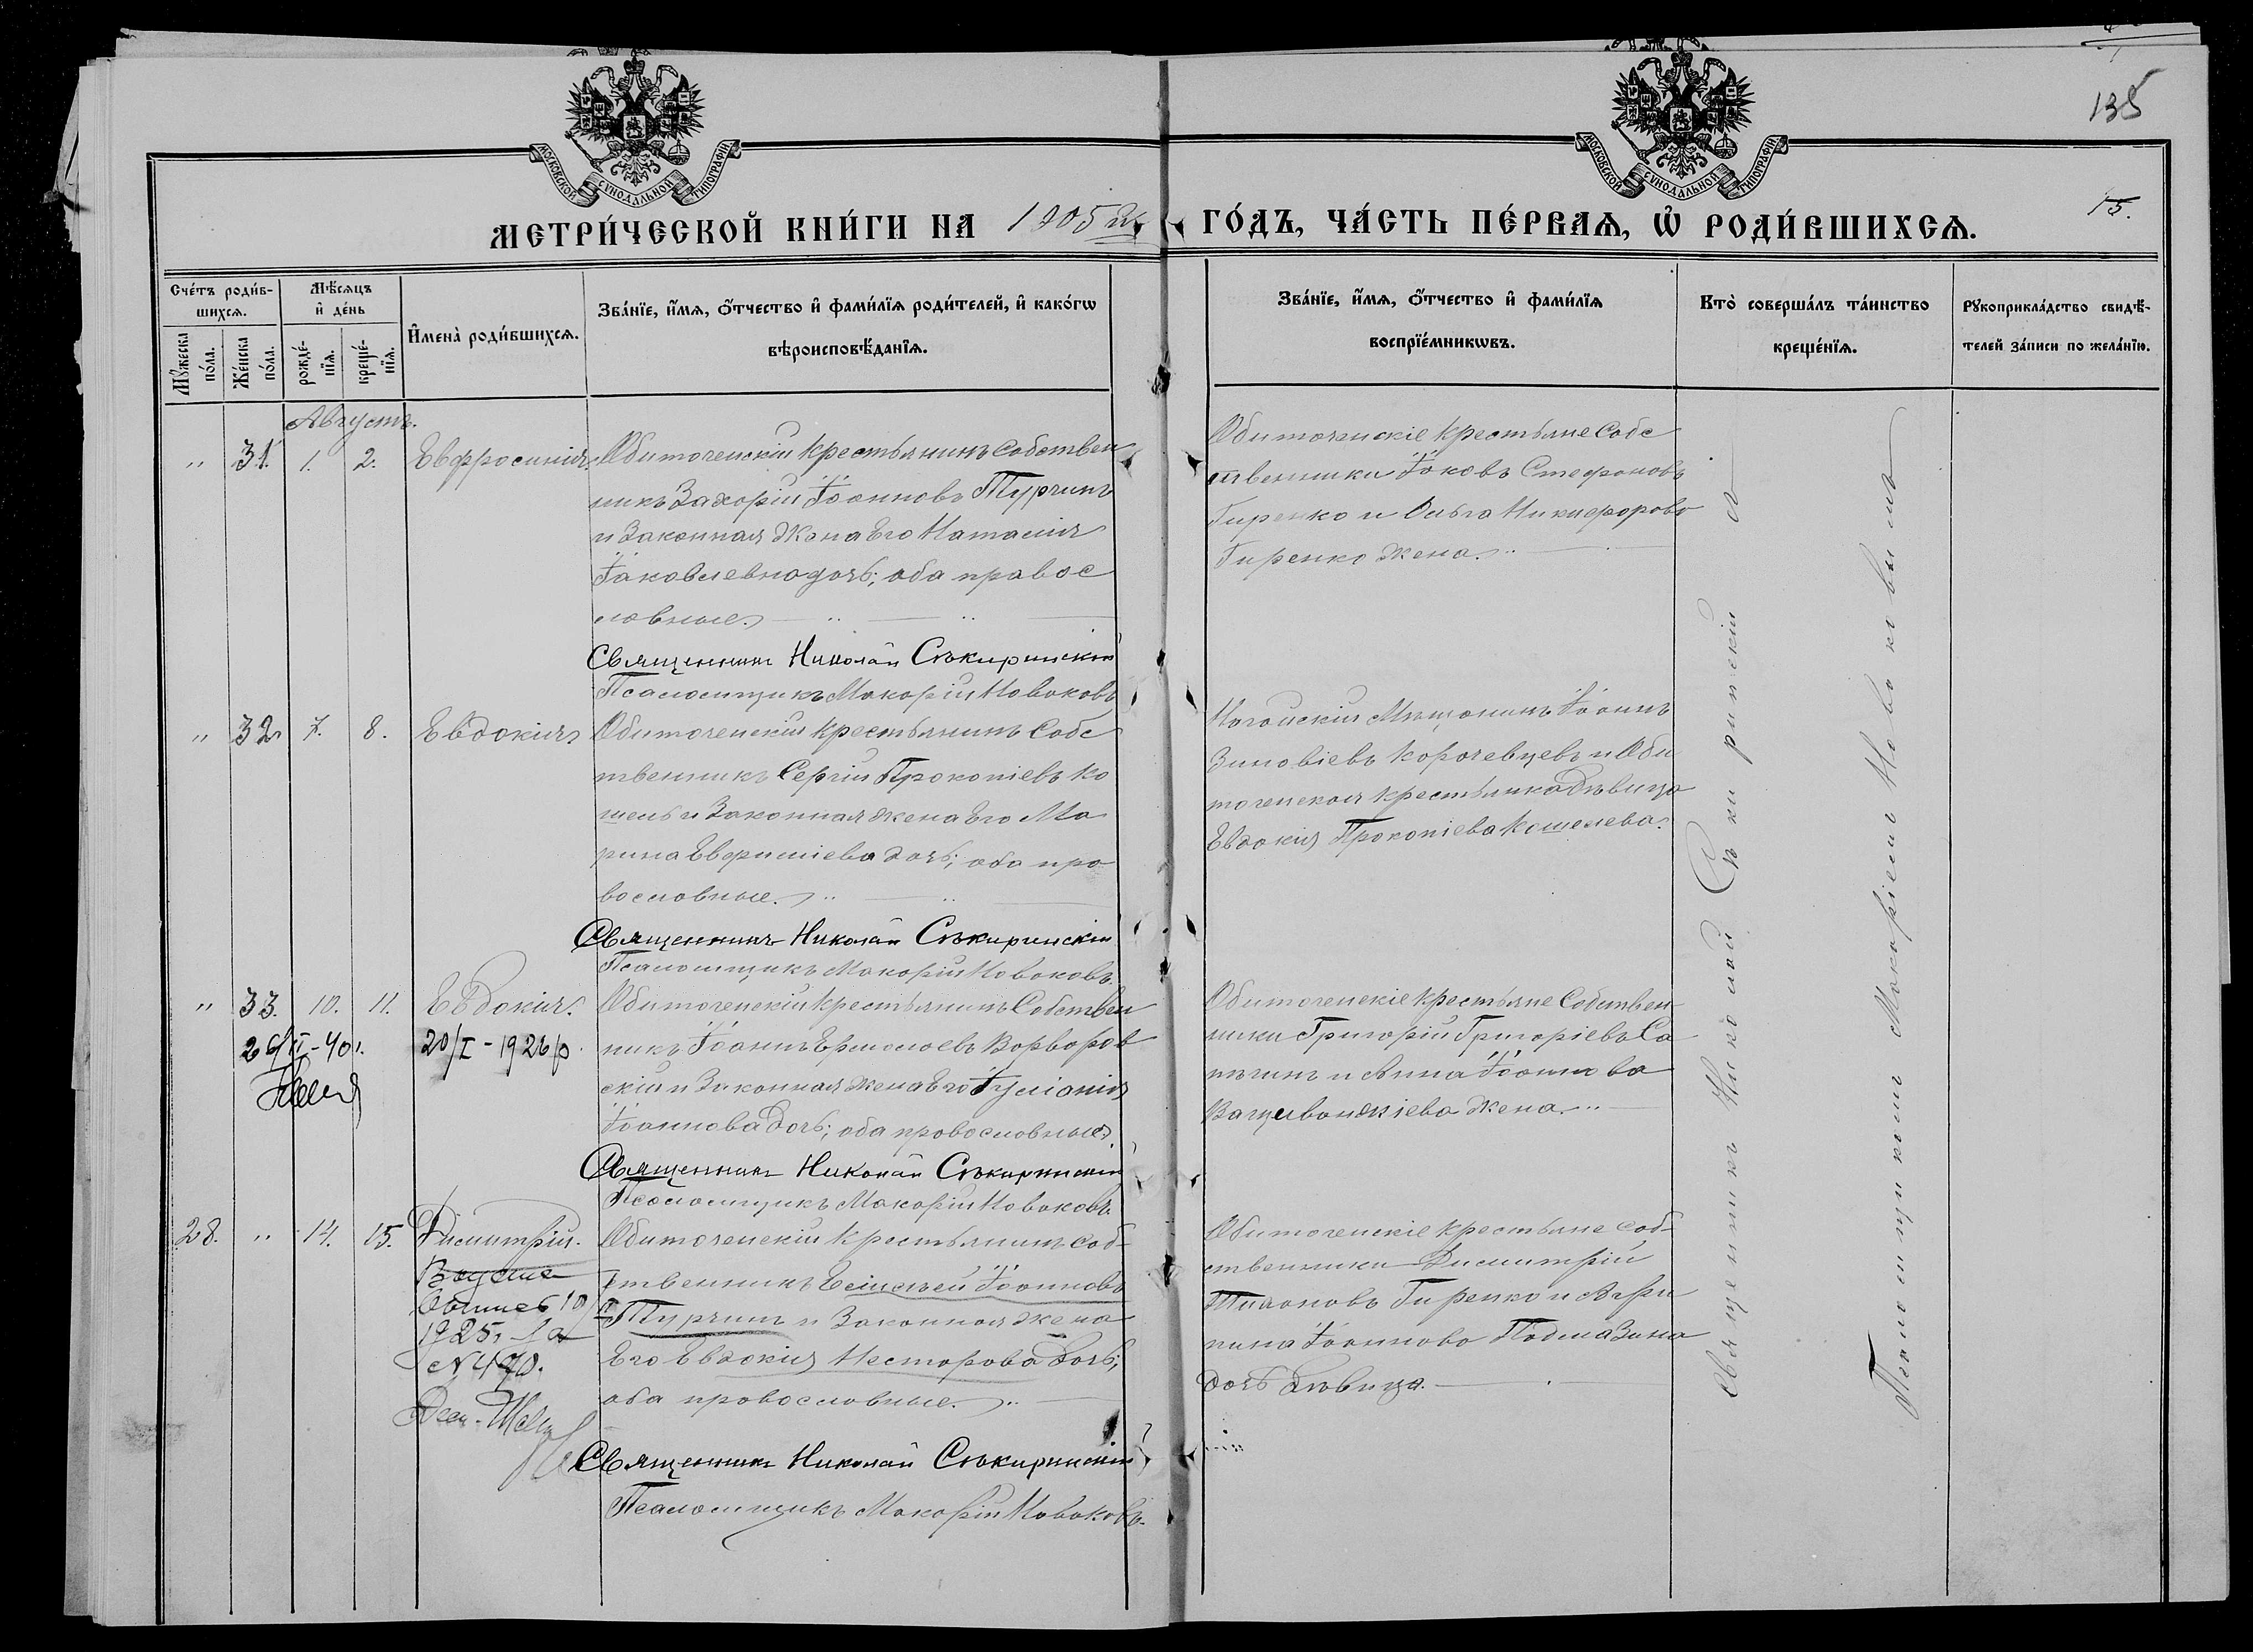 135
МОСКОВСКОЙ СѴНОДАЛЬНОЙ ТИПОГРАФІИ
МОСКОВСКОЙ СѴНОДАЛЬНОЙ ТИПОГРАФІИ
МЕТРИ́ЧЕСКОЙ КНИ́ГИ НА 1905 ГО́ДЪ, ЧА́СТЬ ПЕ́РВАѦ, Ѡ҆ РОДИ́ВШИХСѦ.
15.
Сче́тъ роди́в-
шихсѧ.
Мꙋ́жеска по́ла.
Же́нска по́ла.
Мѣ́сѧцъ
и҆ де́нь
рожде́-
нїѧ.
креще́-
нїѧ.
И҆мена̀ роди́вшихсѧ.
Зва́нїе, и҆́мѧ, ѻ҆́тчество и҆ фами́лїѧ роди́телей, и҆ како́гѡ
вѣроисповѣ́данїѧ.
Зва́нїе, и҆́мѧ, ѻ҆́тчество и҆ фами́лїѧ
воспрїе́мникѡвъ.
Кто̀ соверша́лъ та́инство
креще́нїѧ.
Рꙋкоприкла́дство свидѣ́-
телей за́писи по жела́нїю.
Августъ.
" 31. 1. 2. Евфросинія
Обиточенскій крестьянинъ собствен
никъ Захарій Іоанновъ Турчинъ
и законная жена его Наталія
Іаковлевна дочь; оба правос
лавные.
Священникъ Николай Сѣкиринскій
Псаломщикъ Макарій Новаковъ
Обиточенскіе крестьяне собс
твенники Іаковъ Стефановъ
Гиренко и Ольга Никифорова
Гиренко жена.
" 32. 7. 8. Евдокія
Обиточенскій крестьянинъ собс
твенникъ Сергій Прокопіевъ Ко
шель и законная жена его Ма
рина Евфиміева дочь; оба пра
вославные.
Священникъ Николай Сѣкиринскій
Псаломщикъ Макарій Новаковъ.
Ногайскій мѣщанинъ Іоаннъ
Зиновіевъ Корочевцевъ и Оби
точенская крестьянка дѣвица
Евдокія Прокопіева Кошелева.
" 33. 10. 11. Евдокія.
20/I - 1926 р.
Обиточенскій крестьянинъ собствен
никъ Іоаннъ Ермолаевъ Варваров
скій и законная жена его Іуліанія
Іоаннова дочь; оба православные.
Священникъ Николай Сѣкиринскій
Псаломщикъ Макарій Новаковъ.
Обиточенскіе крестьяне собствен-
ники Григорій Григоріевъ Са
и Анна Іоаннова
жена.
28. " 14. 15. Димитрій.
1925
N 490.
Обиточенскій крестьянинъ соб-
ственникъ Іоанновъ
Турчинъ и законная жена
его Евдокія Несторова дочь;
оба православные.
Священникъ Николай Сѣкиринскій
Псаломщикъ Макарій Новаковъ.
Обиточенскіе крестьяне соб-
ственники Димитрій
Гиренко и Агри
пина Іоаннова
дочь дѣвица.
Священникъ Николай Сѣкиринскій
Псаломщикомъ Макаріемъ Новаковымъ